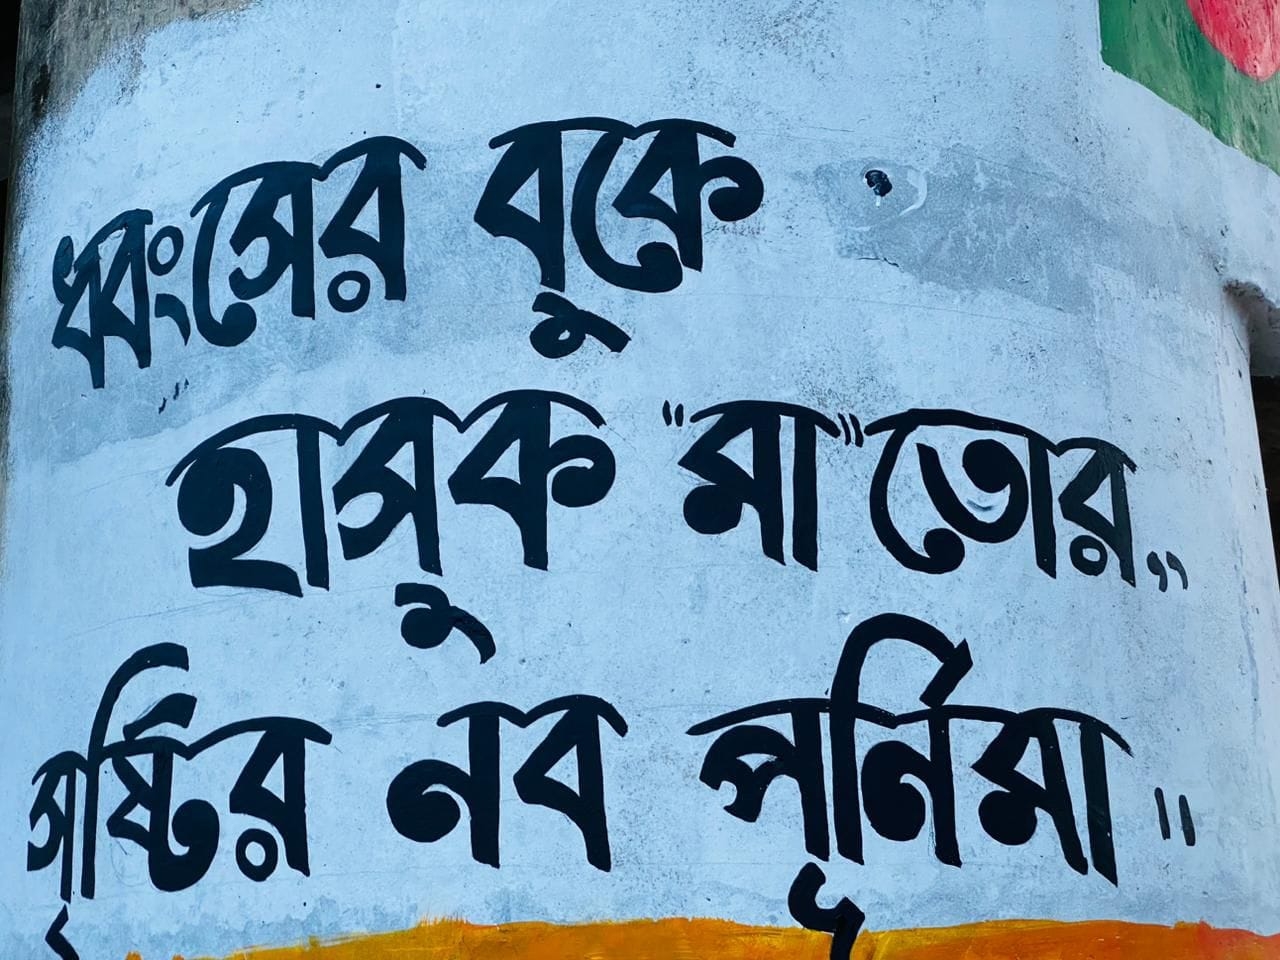 ধ্বংসের বুকে
হাসুক "মা" তোর,,
সৃষ্টির নব পূর্নিমা॥